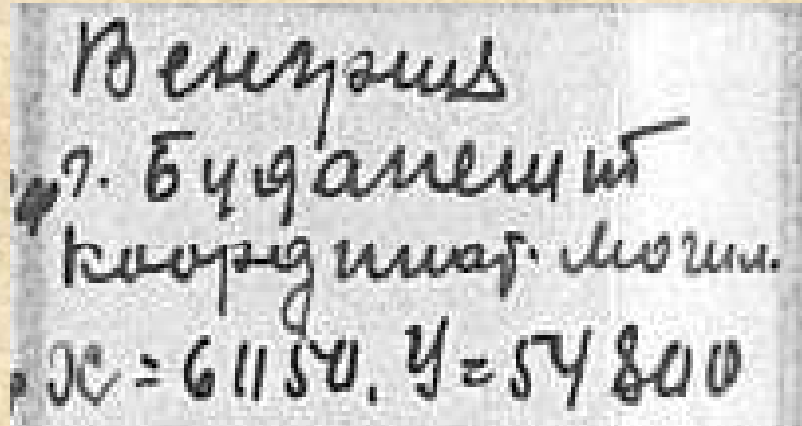 Венгрия
г. Будапешт
координат. могил.
х = 61150, У = 54800